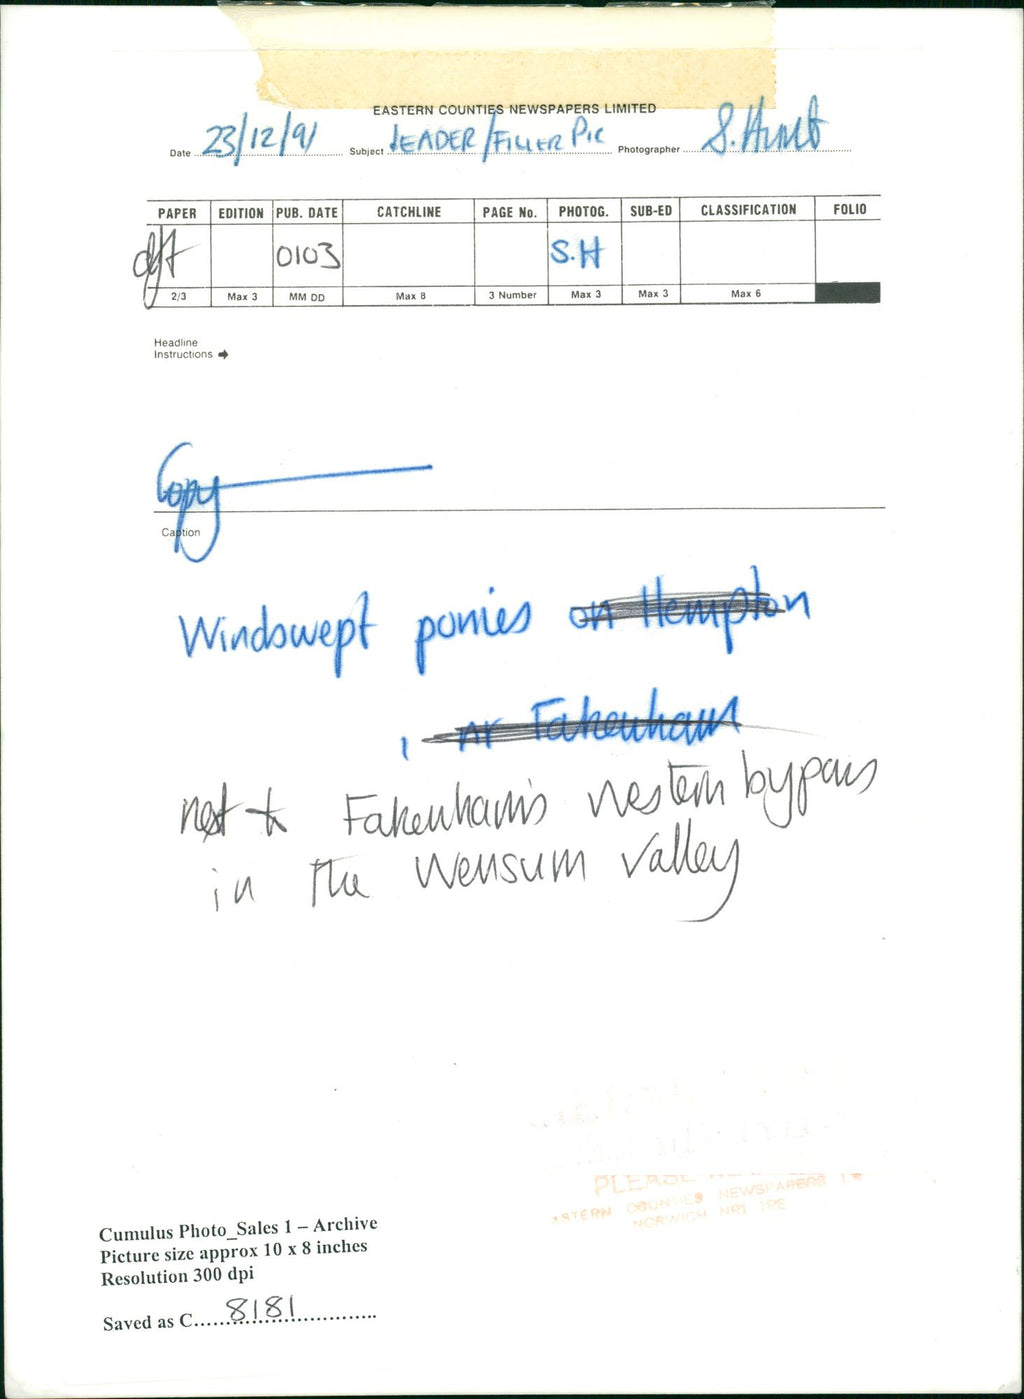 EASTERN COUNTIES NEWSPAPERS LIMITED
Date 23/12/91 Subject LEADER/FILLER PIC Photographer S. Hunt
PAPER EDITION PUB. DATE CATCHLINE PAGE No. PHOTOG. SUB-ED CLASSIFICATION FOLIO
dft 0103 S.H
2/3 Max 3 MM DD Max 8 3 Number Max 3 Max 3 Max 6
Headline
Instructions
Copy
Caption
Windswept ponies on Hempton
, nr Fakenham
next to Fakenham's western bypass
in the Wensum Valley
PLEASE
EASTERN COUNTIES NEWSPAPERS
NORWICH NR1 1RE
Cumulus Photo_Sales 1 – Archive
Picture size approx 10 x 8 inches
Resolution 300 dpi
Saved as C.....8181..............